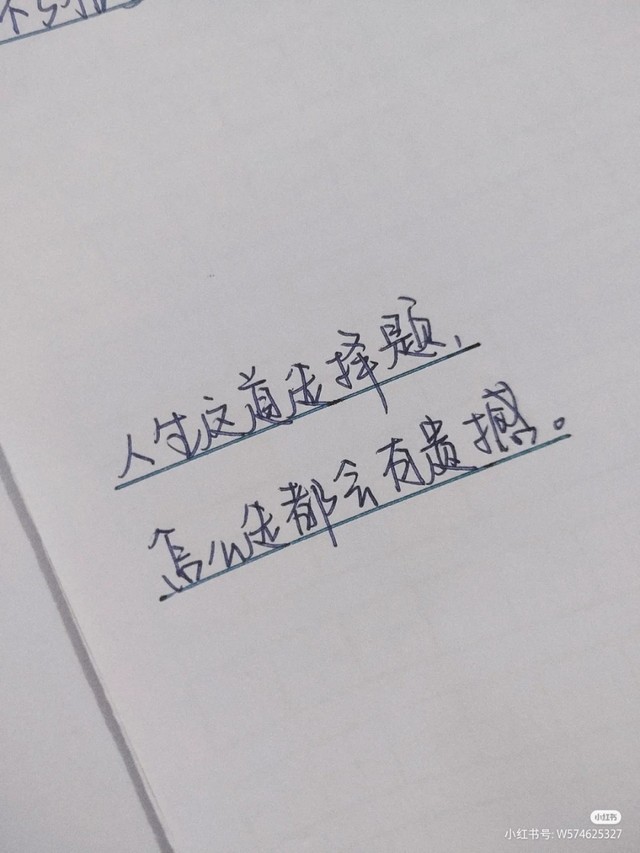 人生这道选择题，
怎么选都会有遗憾。
小红书
小红书号: W574625327